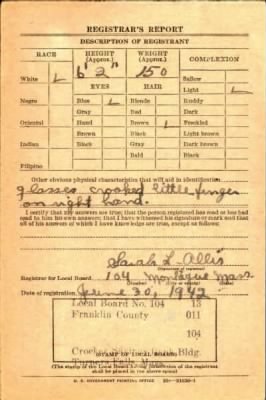 REGISTRAR'S REPORT
DESCRIPTION OF REGISTRANT
RACE HEIGHT (Approx.) WEIGHT (Approx.) COMPLEXION
6' 2" 150
White L Sallow
EYES HAIR Light L
Negro Blue L Blonde Ruddy
Gray Red Dark
Oriental Hazel Brown L Freckled
Brown Black Light brown
Indian Black Gray Dark brown
Bald Black
Filipino
Other obvious physical characteristics that will aid in identification
glasses, crooked little finger
on right hand.
I certify that my answers are true; that the person registered has read or has had
read to him his own answers; that I have witnessed his signature or mark and that
all of his answers of which I have knowledge are true, except as follows:
Sarah L. Allis
(Signature of registrar)
Registrar for Local Board 104 Montague Mass.
(Number) (City or county) (State)
Date of registration June 30, 1942
Local Board No. 104
Franklin County 011
104
Bldg.
STAMP OF LOCAL BOARD
Turners Falls, Mass.
(The stamp of the Local Board having jurisdiction of the registrant
shall be placed in the above space)
U. S. GOVERNMENT PRINTING OFFICE